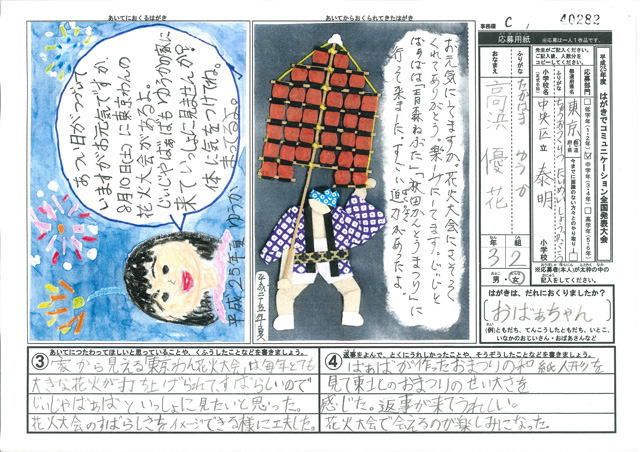 あいてにおくるはがき
あつい日がつづいて
いますがお元気ですか。
8月10日(土)に東京わんの
花火大会があるよ。
じぃじゃばぁばもゆうかの家に
来ていっしょに見ませんか?
体に気をつけてね。
まってるよ。
平成25年夏 ゆうか
あいてからおくられてきたはがき
お元気にしてますか。花火大会にさそってくれてありがとう。楽しみにしてます。じぃじと
ばぁばは「青森ねぶた」「秋田かんとうまつり」に
行って来ました。すごい迫力があったよ。
平成二十五年夏
事務欄 C 40282
応募用紙
※応募は一人1作品です。
先生がご記入ください。
ご記入後、人数分を
コピーしてください。
平成25年度 はがきでコミュニケーション全国発表大会
応募部門
低学年(1・2年)
中学年(3・4年)
高学年(5・6年)
都道府県名
東京
小学校名
中央区立 泰明 小学校
ふりがな
たかはま ゆうか
おなまえ
高浜 優花
3年 2組
男・女
※応募者(本人)が太枠の中の
記入をしてください。
はがきは、だれにおくりましたか?
おばぁちゃん
(例)ともだち、てんこうしたともだち、いとこ、
いなかのおじいさん・おばあさんなど
③ あいてにつたわってほしいと思っていることや、くふうしたことなどを書きましょう。
家から見える東京わん花火大会は毎年とても
大きな花火が打ち上げられてすばらしいので
じぃじゃばぁばといっしょに見たいと思った。
花火大会のすばらしさをイメージできる様に工夫した。
④ 返事をよんで、とくにうれしかったことや、そうぞうしたことなどを書きましょう。
ばぁばが作ったおまつりの和紙人形を
見て東北のおまつりのせい大さを
感じた。返事が来てうれしい。
花火大会で会えるのが楽しみになった。